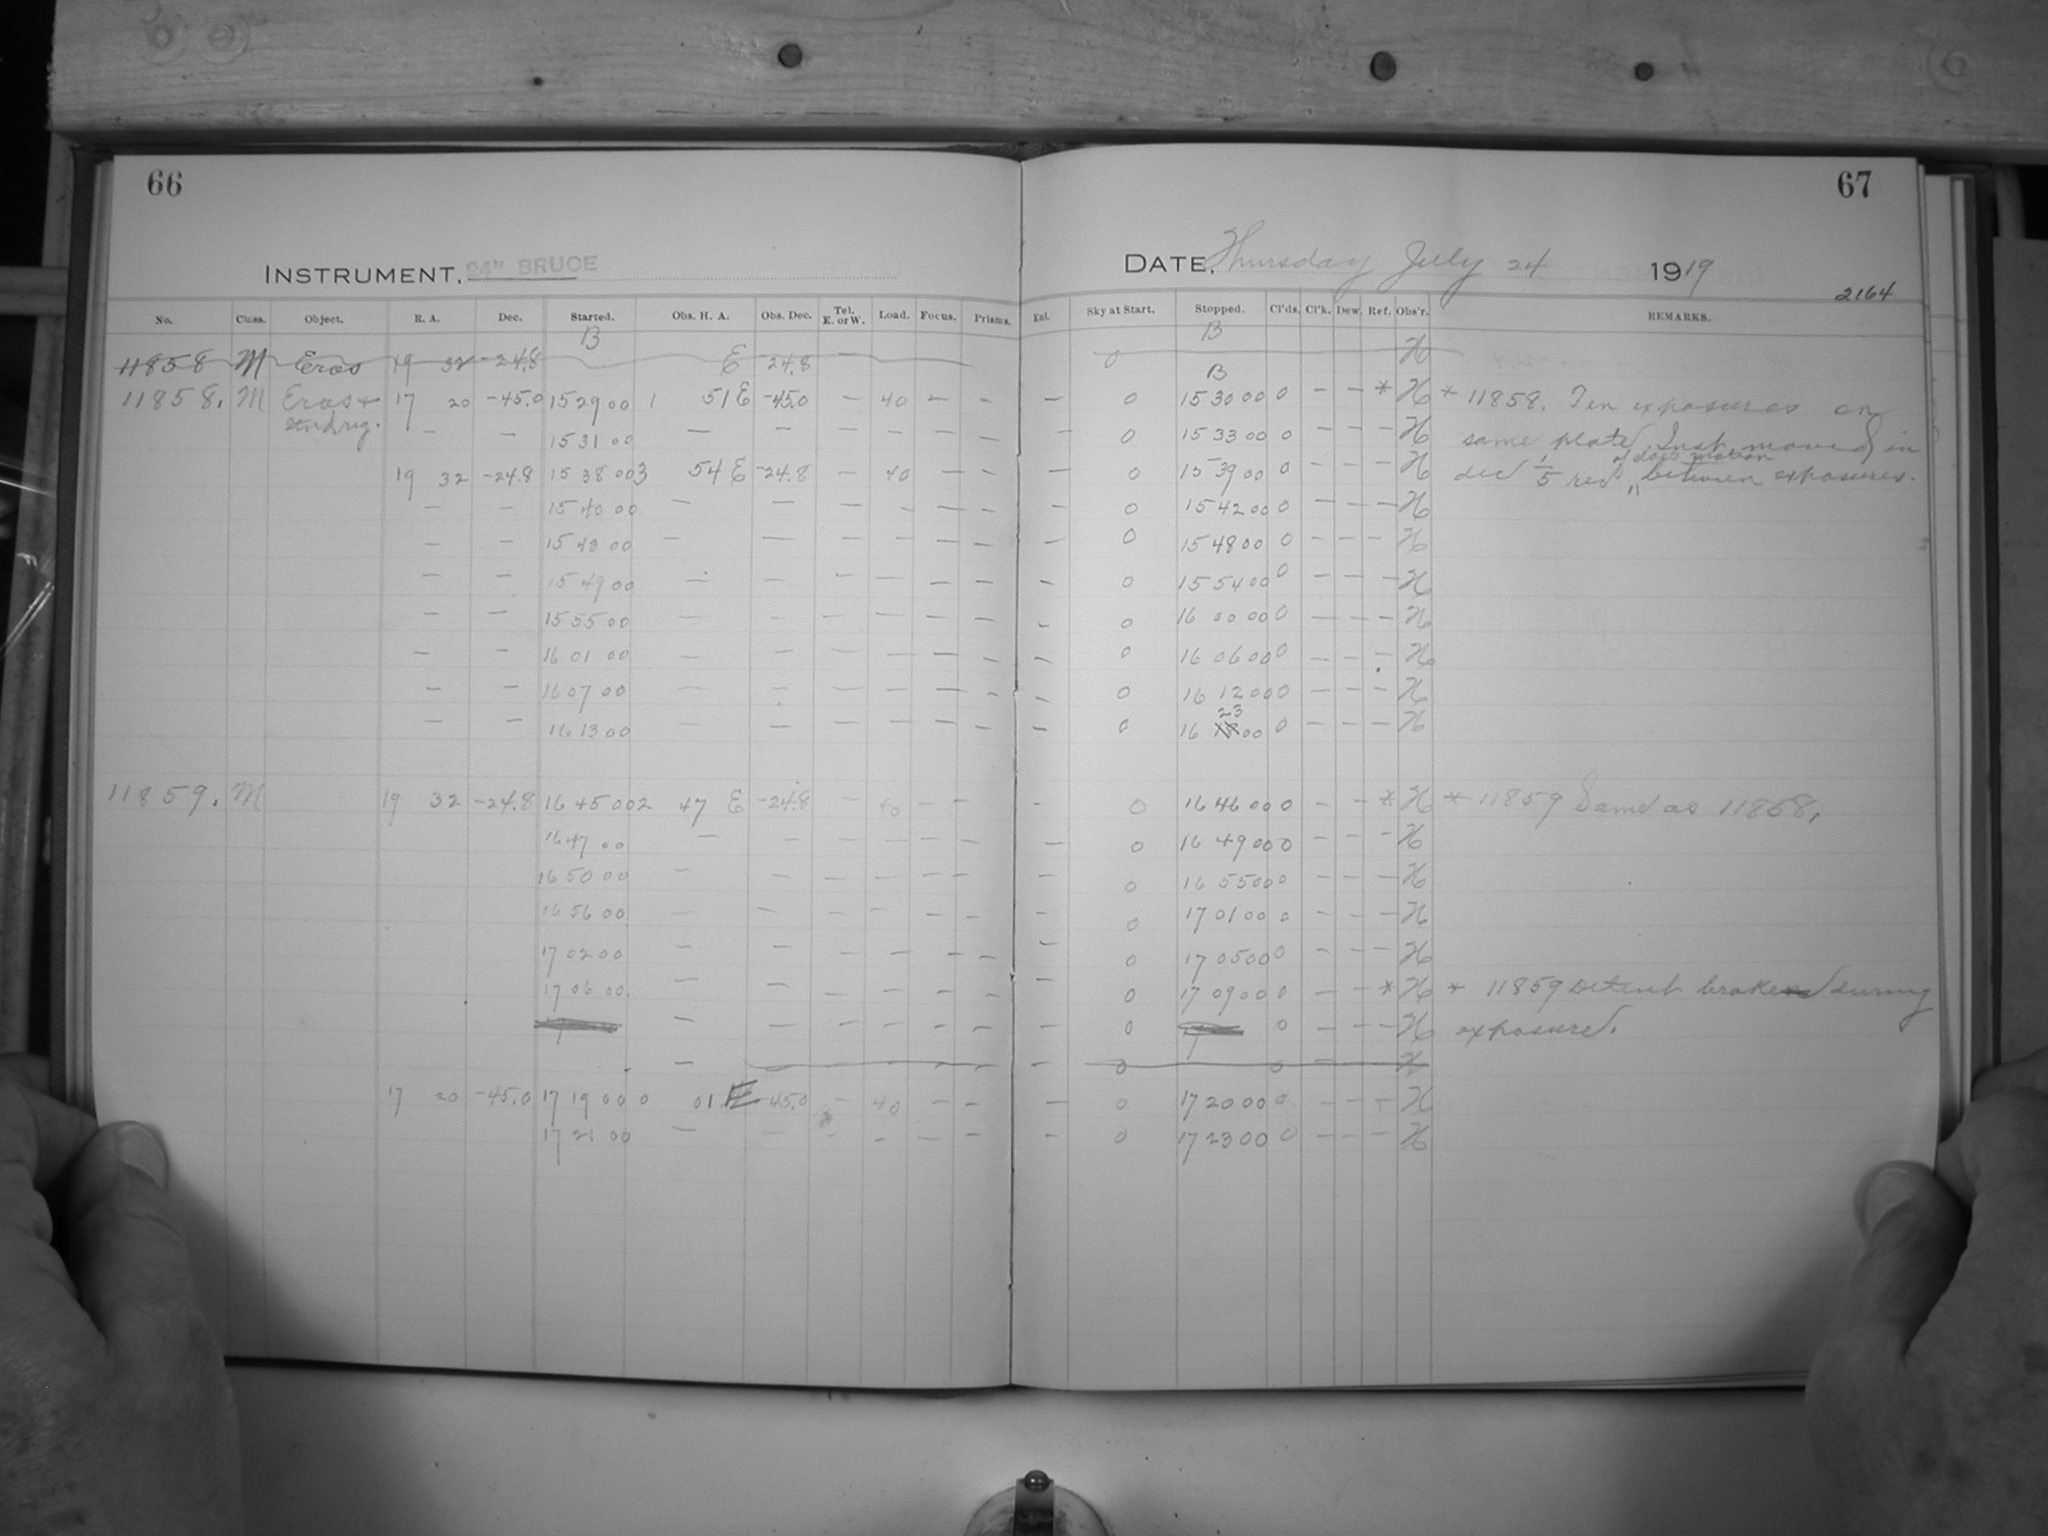 66
67
INSTRUMENT, 24" BRUCE
DATE, Thursday July 24 1919
2164
No. Class. Object. R. A. Dec. Started. Obs. H. A. Obs. Dec. Tel. E. or W. Load. Focus. Prisms. Enl. Sky at Start. Stopped. Cl'ds. Cl'k. Dew. Ref. Obs'r. REMARKS.
B B
11858 M Eros 19 32 -24.8 E -24.8 — 0 H
B
11858. M Eros + 17 20 -45.0 15 29 00 1 51 E -45.0 — 40 — — — 0 15 30 00 0 — — * H * 11858. Ten exposures on
stnd. reg. — — 15 31 00 — — — — — — — 0 15 33 00 0 — — — H same plate. Inst. moved in
19 32 -24.8 15 38 00 3 54 E -24.8 — 40 — — — 0 15 39 00 0 — — — H dec 1/5 rev " between exposures.
— — 15 40 00 — — — — — — — 0 15 42 00 0 — — — H
— — 15 43 00 — — — — — — — 0 15 48 00 0 — — — H
— — 15 49 00 — — — — — — — 0 15 54 00 0 — — — H
— — 15 55 00 — — — — — — — 0 16 00 00 0 — — — H
— — 16 01 00 — — — — — — — 0 16 06 00 0 — — — H
— — 16 07 00 — — — — — — — 0 16 12 00 0 — — — H
23
— — 16 13 00 — — — — — — — 0 16 18 00 0 — — — H
11859. M 19 32 -24.8 16 45 00 2 47 E -24.8 — 40 — — — 0 16 46 00 0 — — * H * 11859 Same as 11858.
16 47 00 — — — — — — — 0 16 49 00 0 — — — H
16 50 00 — — — — — — — 0 16 55 00 0 — — — H
16 56 00 — — — — — — — 0 17 01 00 0 — — — H
17 02 00 — — — — — — — 0 17 05 00 0 — — — H
17 06 00 — — — — — — — 0 17 09 00 0 — — * H * 11859 Detent broke during
17 — — — — — — — 0 17 0 — — — H exposure.
— — — — — — — 0 0 — H
17 20 -45.0 17 19 00 0 01 E -45.0 — 40 — — — 0 17 20 00 0 — — — H
17 21 00 — — — — — — — 0 17 23 00 0 — — — H